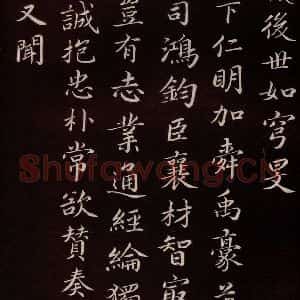 後世如穹旻
下仁明加舜禹豪
司鴻鈞臣襄材智
豈有志業通經綸獨
誠抱忠朴常欲贊奏
又聞
Shufawang.cn